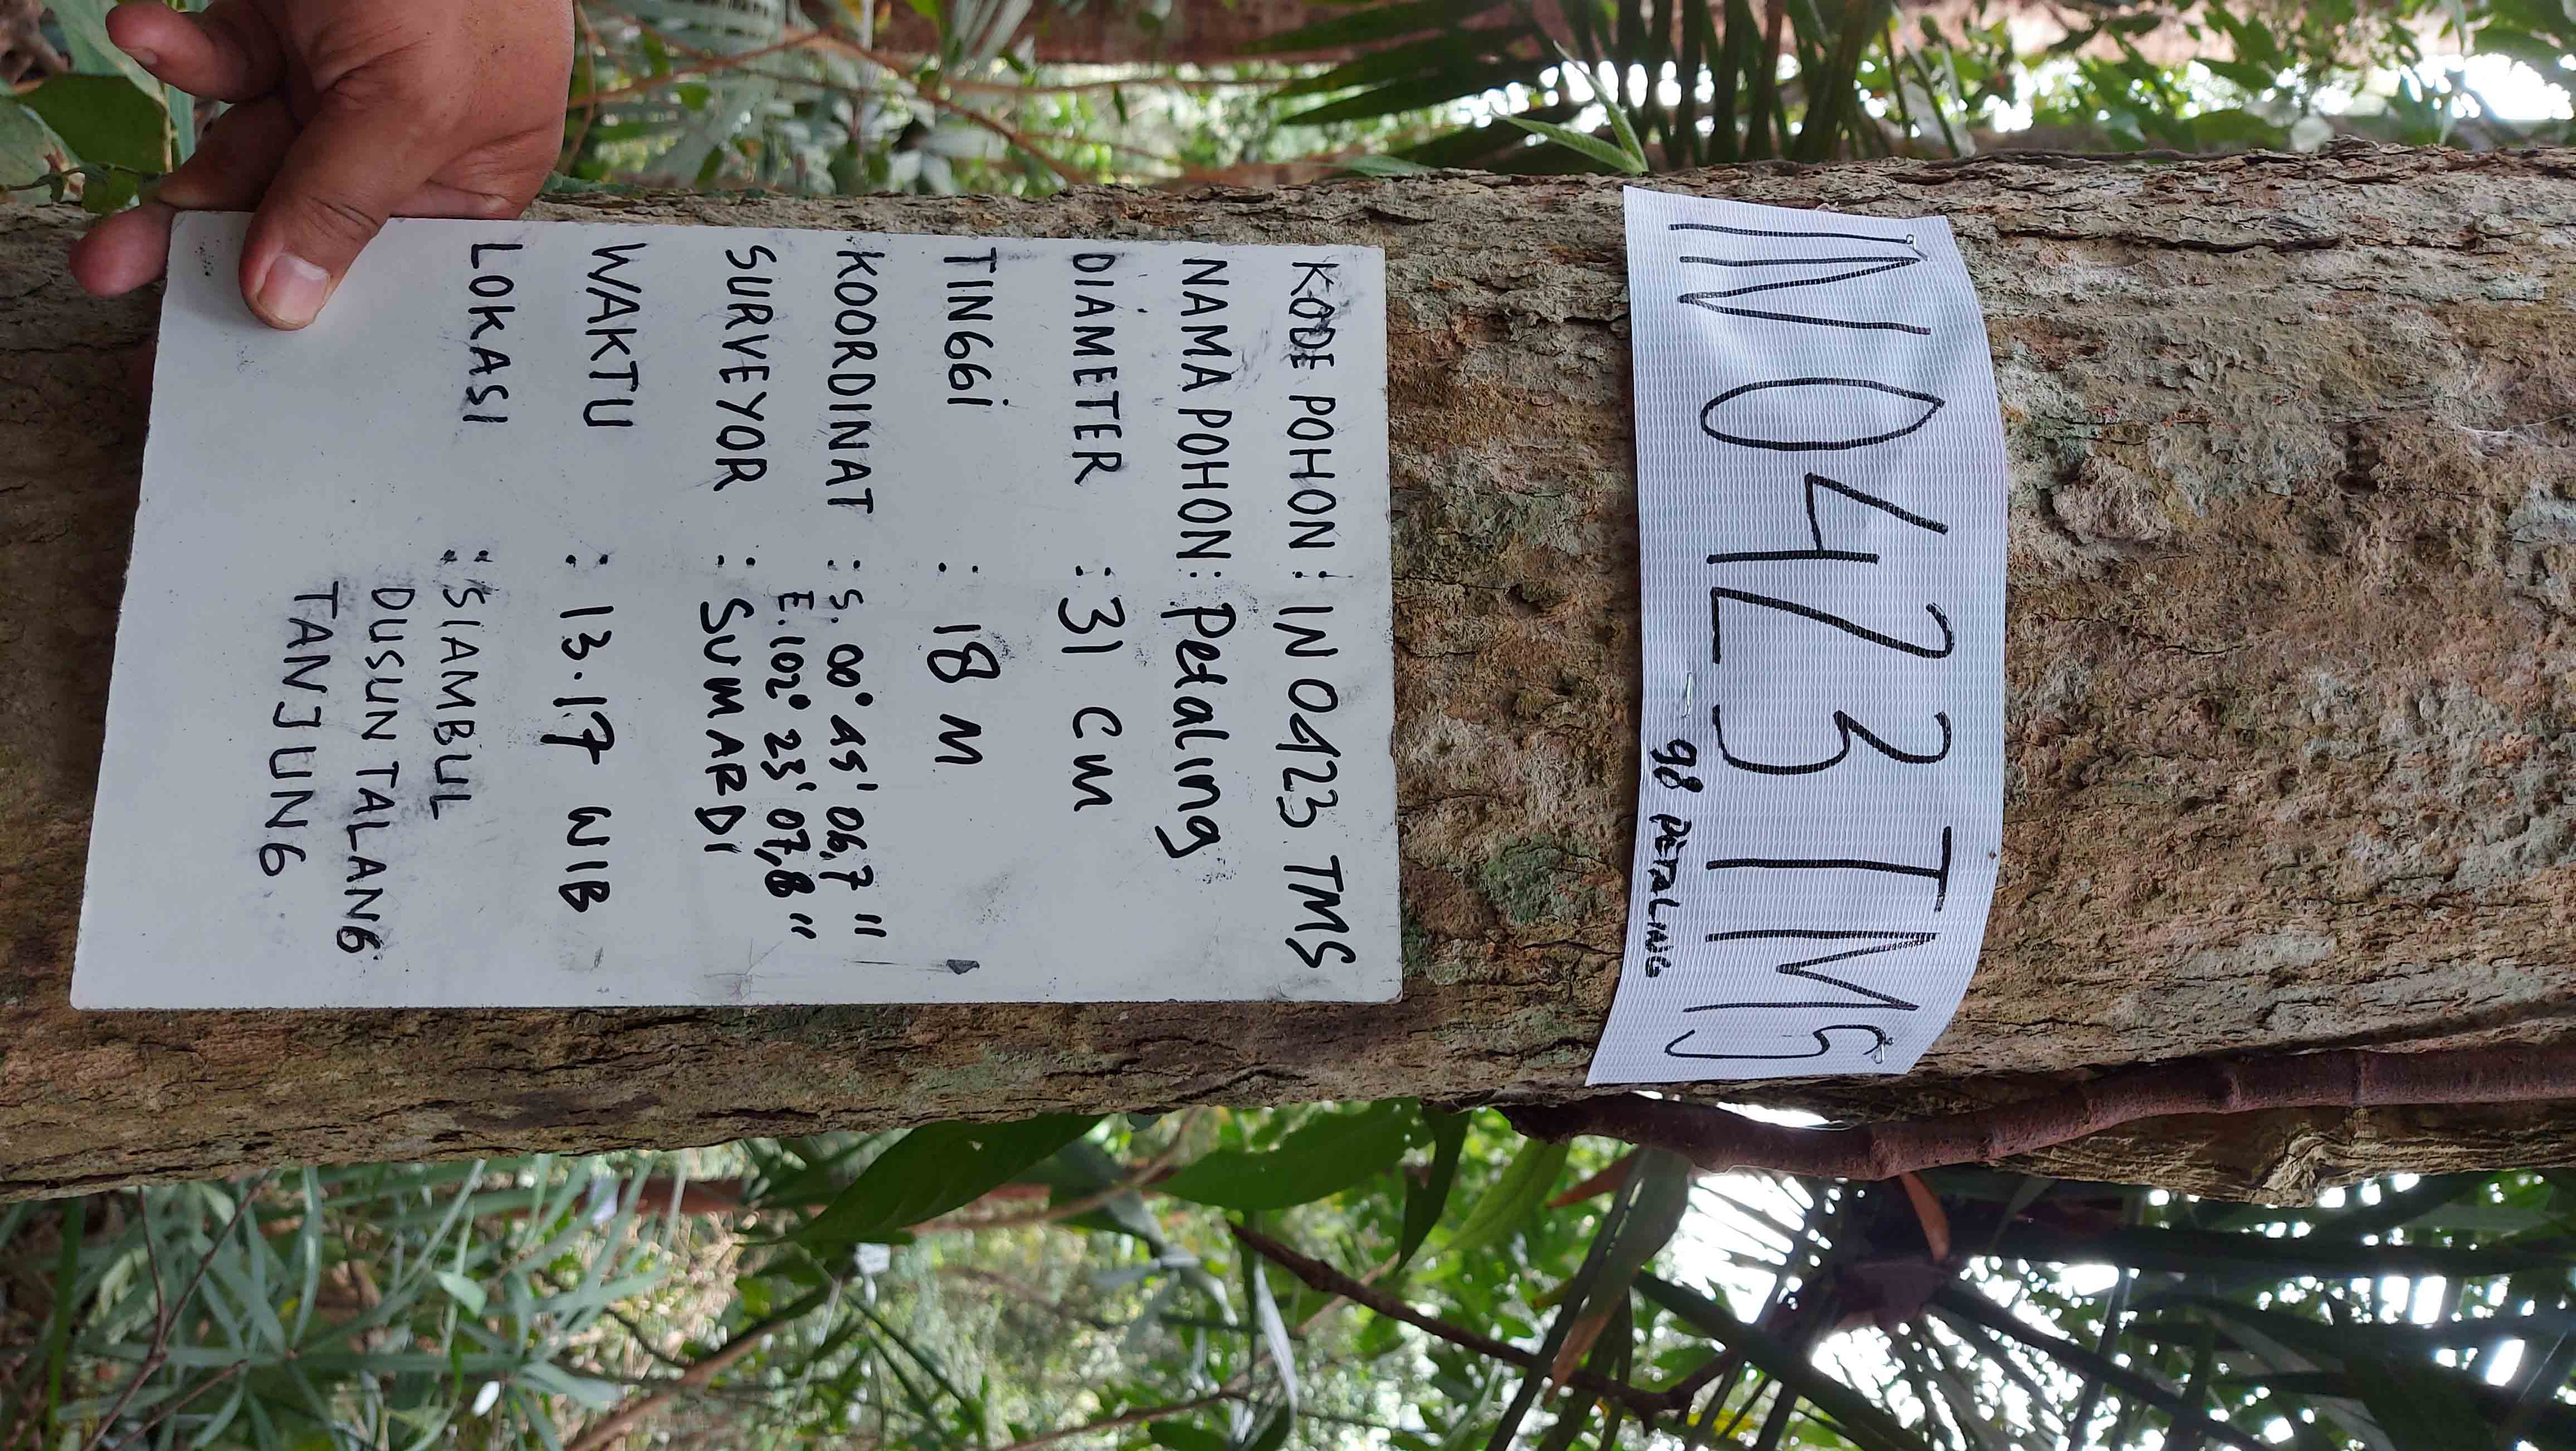 IN0423TMS
98 PETALING
KODE POHON : IN 0423. TMS
NAMA POHON : Petaling
DIAMETER : 31 CM
TINGGi : 18 M
KOORDINAT : S. 00° 45' 06,7"
E. 102° 23' 07,8"
SURVEYOR : SUMARDI
WAKTU : 13.17 WIB
LOKASI : SIAMBUL
DUSUN TALANG
TANJUNG